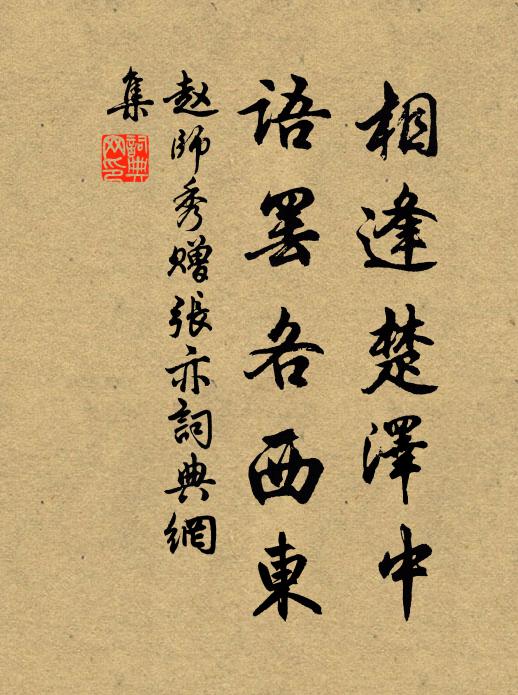 相逢楚澤中
語罢各西東
赵師秀贈張亦詞典網
集
詞典網印